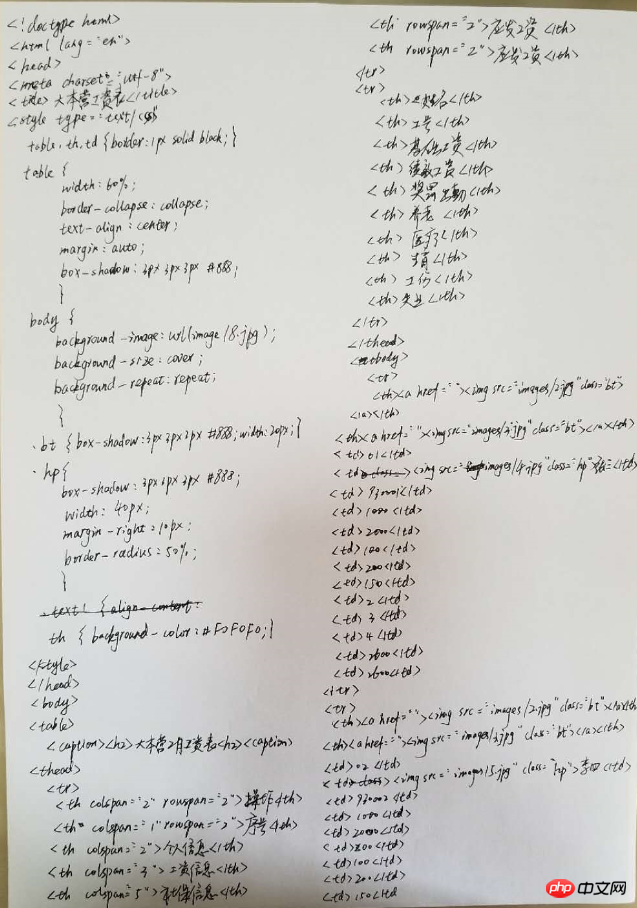 <!doctype html>
<html lang="en">
<head>
<meta charset="utf-8">
<title>大本营工资表</title>
<style type="text/css">
table,th,td {border:1px solid black;}
table {
width:60%;
border-collapse:collapse;
text-align:center;
margin:auto;
box-shadow:3px 3px 3px #888;
}
body {
background-image:url(image/8.jpg);
background-size:cover;
background-repeat:repeat;
}
.bt {box-shadow:3px 3px 3px #888;width:20px;}
.hp{
box-shadow:3px 3px 3px #888;
width:40px;
margin-right:10px;
border-radius:50%;
}
th {background-color:#F0F0F0;}
</style>
</head>
<body>
<table>
<caption><h2>大本营2月工资表<h2><caption>
<thead>
<tr>
<th colspan="2" rowspan="2">操作</th>
<th colspan="1" rowspan="2">序号</th>
<th colspan="2">个人信息</th>
<th colspan="3">工资信息</th>
<th colspan="5">社保信息</th>
<th rowspan="2">应发工资</th>
<th rowspan="2">应发工资</th>
</tr>
<tr>
<th>姓名</th>
<th>工号</th>
<th>基础工资</th>
<th>绩效工资</th>
<th>奖罚出勤</th>
<th>养老</th>
<th>医疗</th>
<th>生育</th>
<th>工伤</th>
<th>失业</th>
</tr>
</thead>
<tbody>
<tr>
<th><a href=" "><img src="images/2.jpg" class="bt">
</a></th>
<th><a href=" "><img src="images/3.jpg" class="bt"></a></th>
<td>01</td>
<td><img src="images/4.jpg" class="hp">张三</td>
<td>93001</td>
<td>1000</td>
<td>2000</td>
<td>100</td>
<td>200</td>
<td>150</td>
<td>2</td>
<td>3</td>
<td>4</td>
<td>2600</td>
<td>2600</td>
</tr>
<tr>
<th><a href=" "><img src="images/2.jpg" class="bt"></a></th>
<th><a href=" "><img src="images/3.jpg" class="bt"></a></th>
<td>02</td>
<td><img src="images/5.jpg" class="hp">李四</td>
<td>93002</td>
<td>1000</td>
<td>2000</td>
<td>200</td>
<td>100</td>
<td>200</td>
<td>150</td>
php 中文网